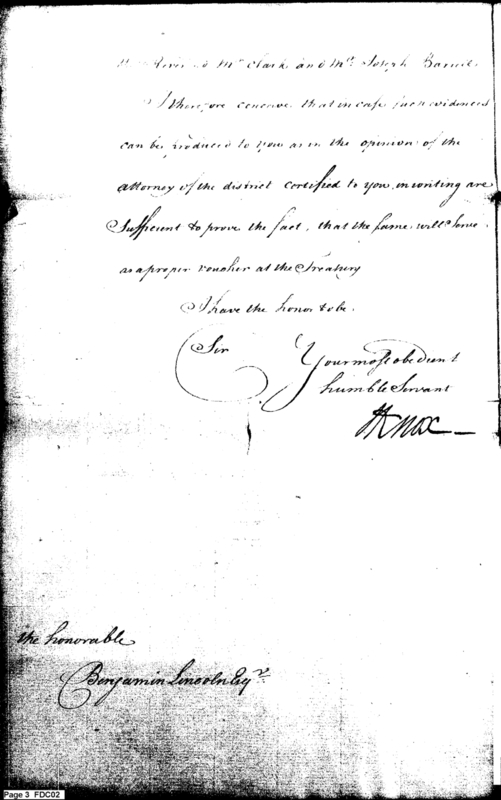 Mr Clark and Mr Joseph
I therefore conceive that in case such evidences
can be produced to you as in the opinion of the
attorney of the district certified to you, in writing are
Sufficient to prove the fact, that the same will serve
as a proper voucher at the Treasury
I have the honor to be
Sir
Your most obedient
humble Servant
HKnox
the honorable
Benjamin Lincoln Esqr.
Page 3 FDC02